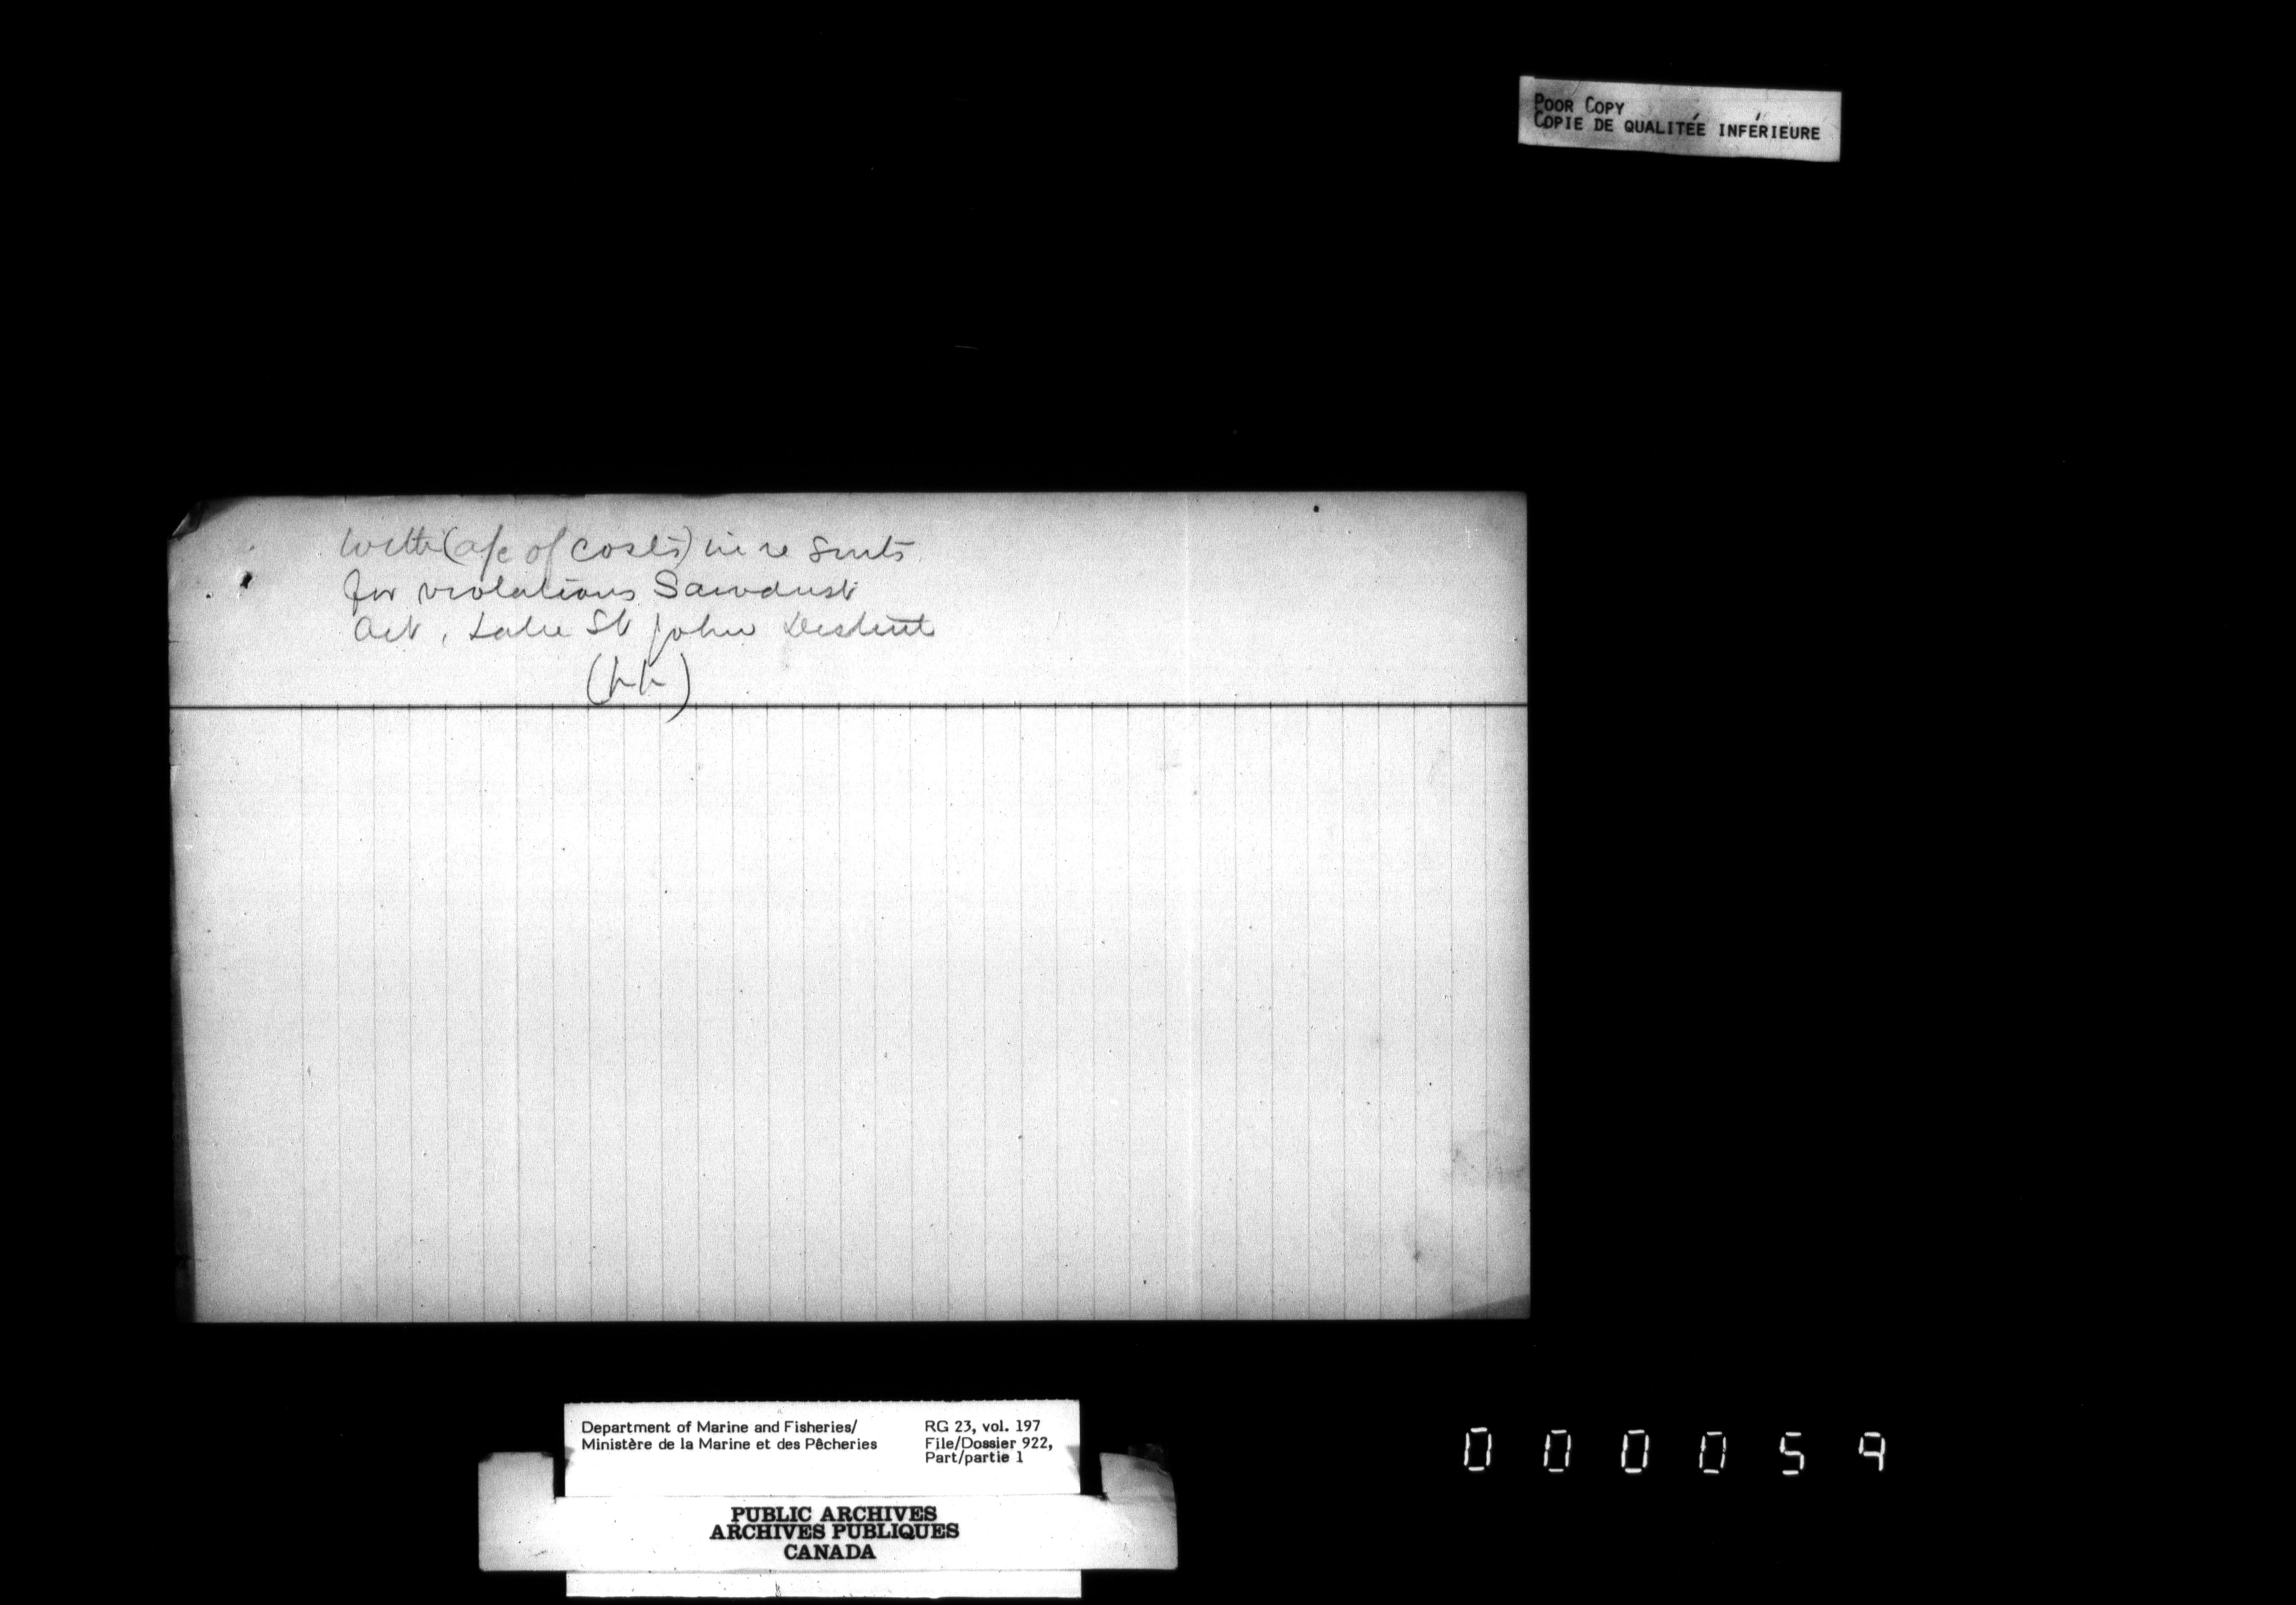 POOR COPY
COPIE DE QUALITÉE INFÉRIEURE
with (a/c of costs) in re suits
for violations Sawdust
Act, Lake St John District
Department of Marine and Fisheries/
Ministère de la Marine et des Pêcheries
RG 23, vol. 197
File/Dossier 922,
Part/partie 1
PUBLIC ARCHIVES
ARCHIVES PUBLIQUES
CANADA
000059